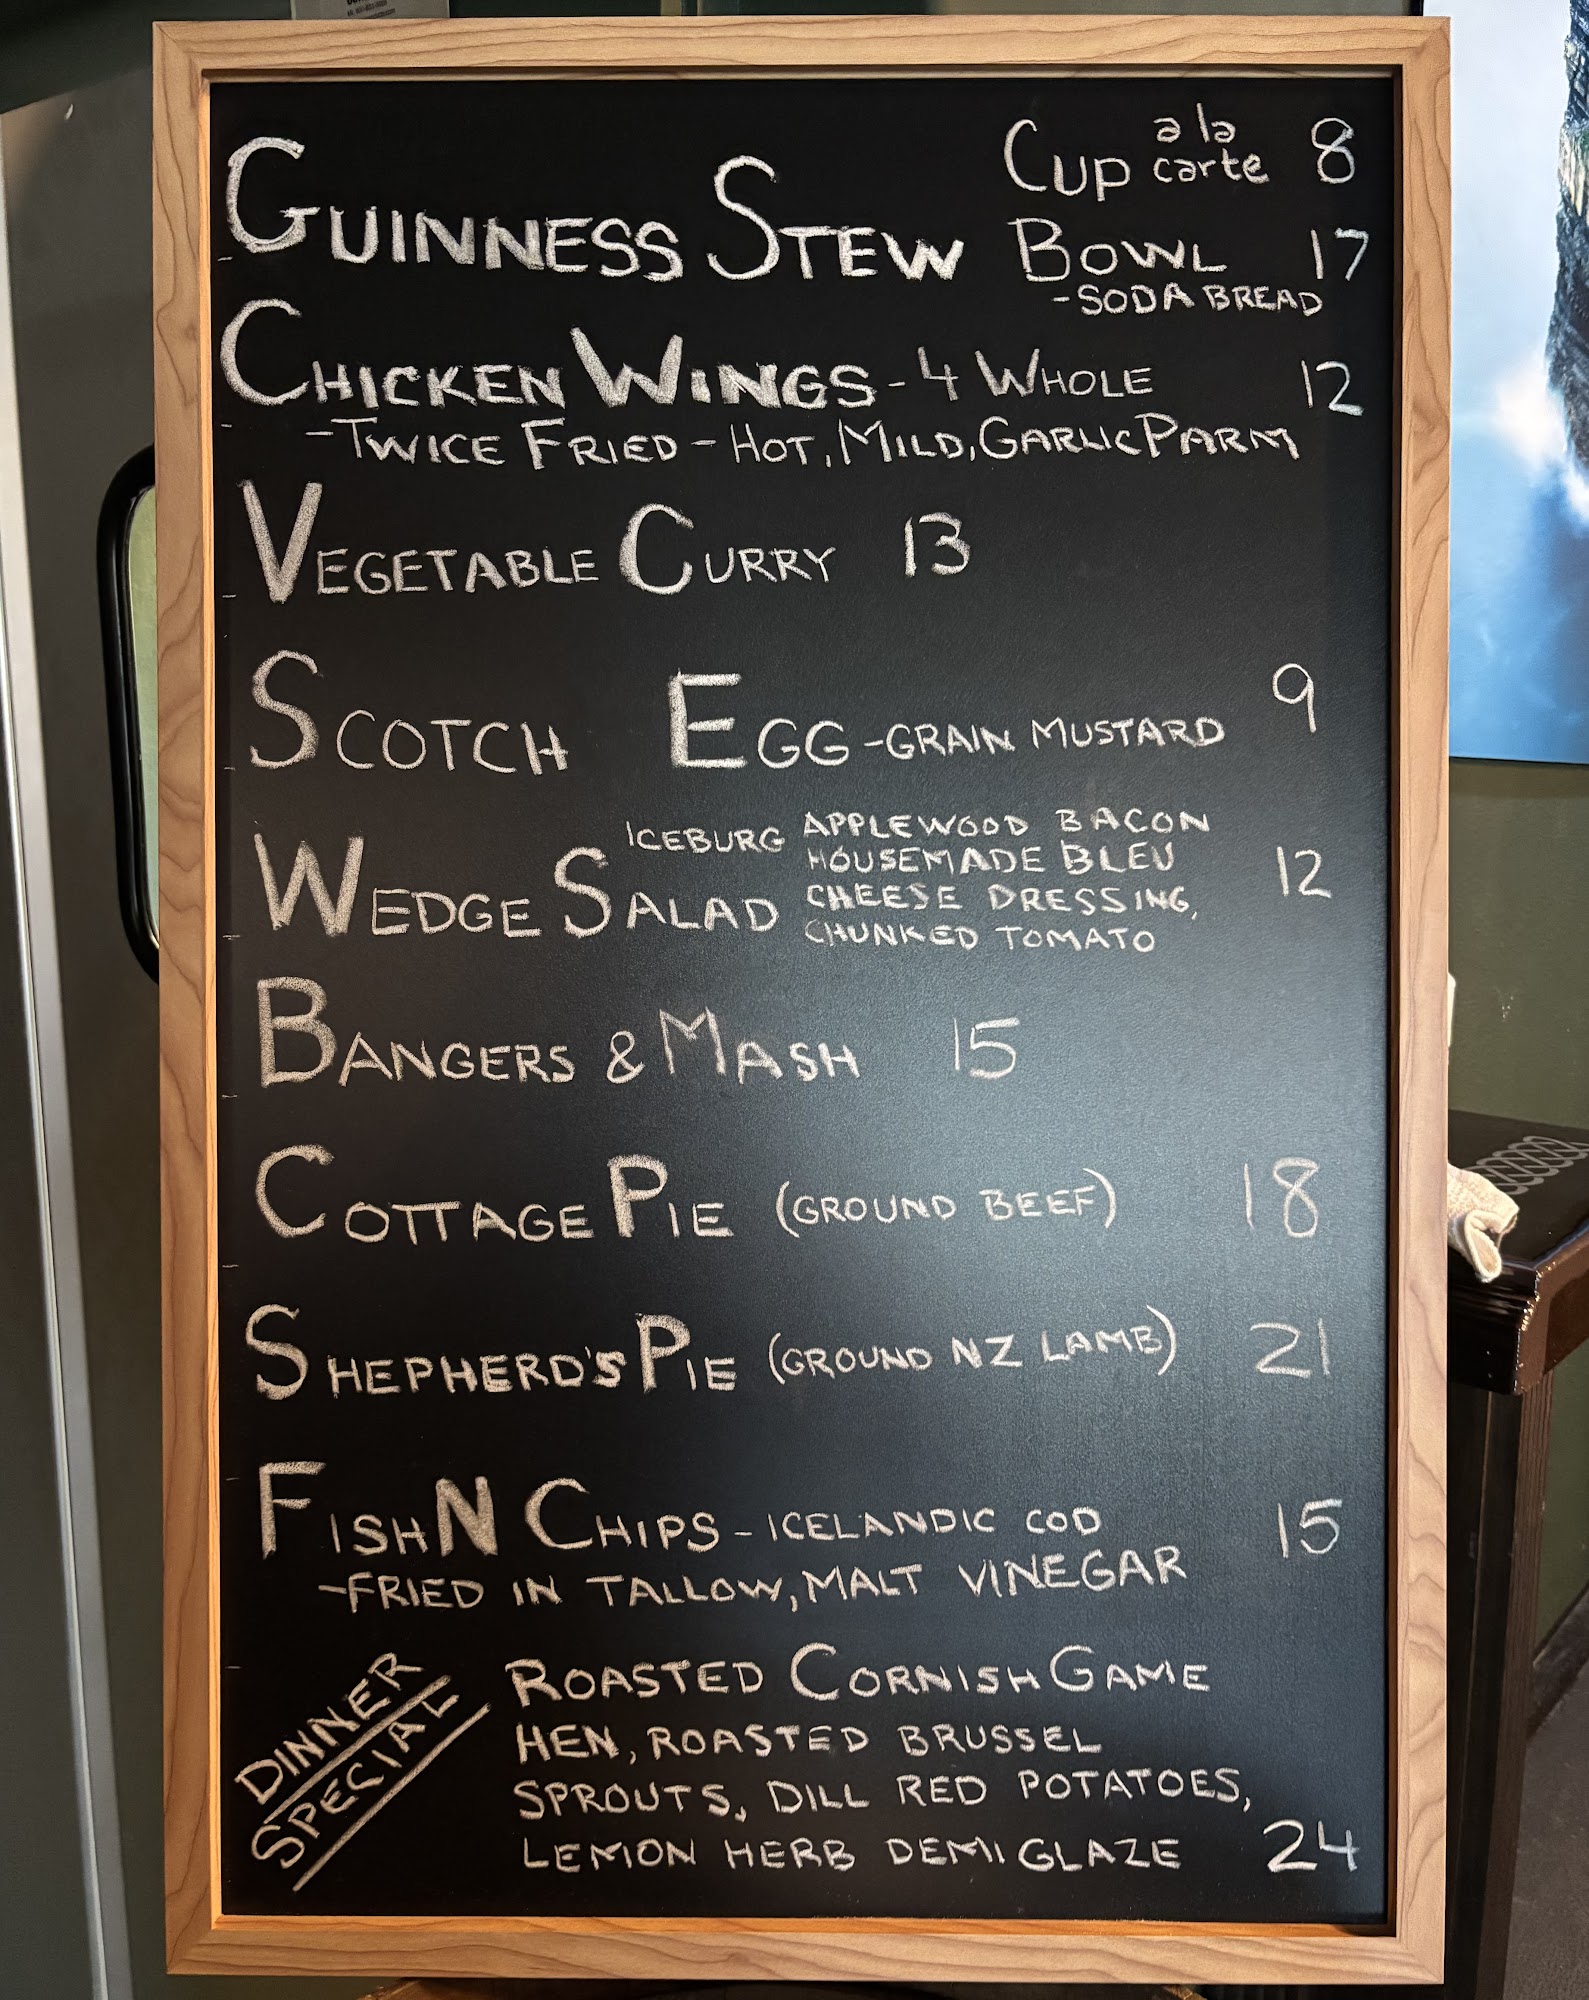 Cup a la carte 8
GUINNESS STEW BOWL 17
-SODA BREAD
CHICKEN WINGS - 4 WHOLE 12
-TWICE FRIED - HOT, MILD, GARLIC PARM
VEGETABLE CURRY 13
SCOTCH EGG -GRAIN MUSTARD 9
WEDGE SALAD ICEBURG APPLEWOOD BACON
HOUSEMADE BLEU
CHEESE DRESSING, 12
CHUNKED TOMATO
BANGERS & MASH 15
COTTAGE PIE (GROUND BEEF) 18
SHEPHERD'S PIE (GROUND NZ LAMB) 21
FISH N CHIPS - ICELANDIC COD 15
-FRIED IN TALLOW, MALT VINEGAR
DINNER
SPECIAL
ROASTED CORNISH GAME
HEN, ROASTED BRUSSEL
SPROUTS, DILL RED POTATOES,
LEMON HERB DEMI GLAZE 24